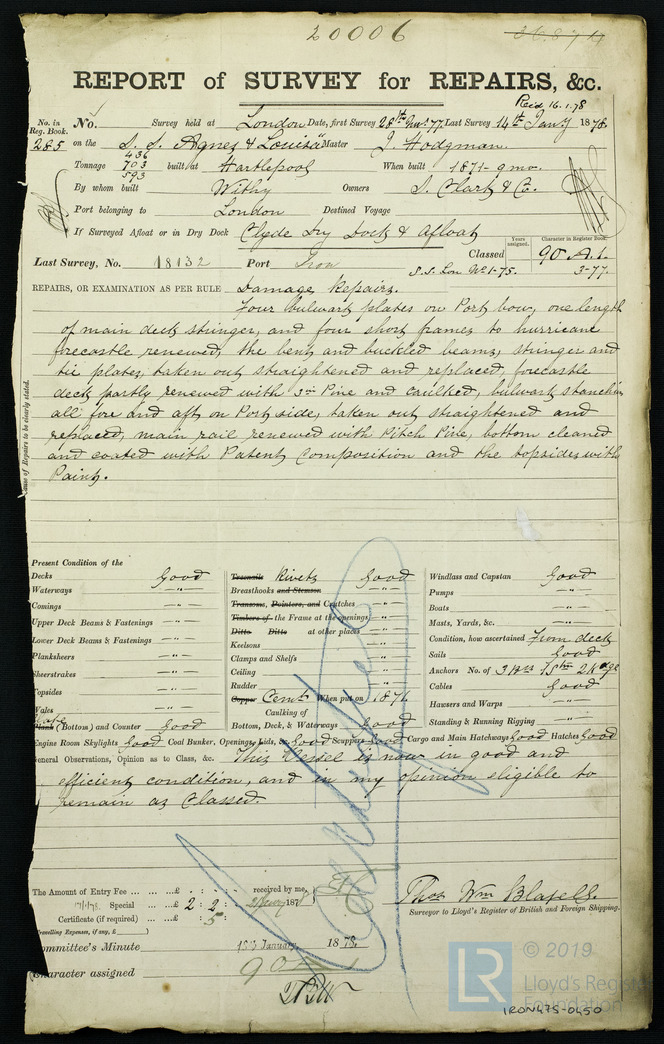 20006
REPORT of SURVEY for REPAIRS, &c.
Recd 16.1.78
No. in Reg. Book. No. Survey held at London Date, first Survey 28th Novr. 77 Last Survey 14th Jany 1878
285 on the S. S. Agnes & Louisa Master J. Hodgman
436
Tonnage 703 built at Hartlepool When built 1871 - 9 mo.
593
By whom built Withy Owners S. Clark & Co.
Port belonging to London Destined Voyage
If Surveyed Afloat or in Dry Dock Clyde Dry Dock & Afloat
Years assigned. Character in Register Book.
Last Survey, No. 18132 Port Iron Classed 90 A.1.
S.S. Lon No 1-75. 3-77.
REPAIRS, OR EXAMINATION AS PER RULE Damage Repairs.
Four bulwark plates on Port bow, one length
of main deck stringer, and four short frames to hurricane
forecastle renewed, the bent and buckled beams, stringer and
tie plates, taken out straightened and replaced, forecastle
deck partly renewed with 3in Pine and caulked, bulwark stanchions
all fore and aft on Port side, taken out straightened and
replaced, main rail renewed with Pitch Pine, bottom cleaned
and coated with Patent Composition and the topsides with
Paint.
Cause of Repairs to be clearly stated.
Present Condition of the
Decks Good
Waterways — " —
Comings — " —
Upper Deck Beams & Fastenings — " —
Lower Deck Beams & Fastenings — " —
Planksheers — " —
Sheerstrakes — " —
Topsides — " —
Wales — " —
Plate
Plank (Bottom) and Counter Good
Treenails Rivets Good
Breasthooks and Stemson — " —
Transoms, Pointers, and Crutches — " —
Timbers of the Frame at the openings — " —
Ditto Ditto at other places — " —
Keelsons — " —
Clamps and Shelfs — " —
Ceiling — " —
Rudder — " —
Copper Cemt. When put on 1871
Caulking of
Bottom, Deck, & Waterways Good
Windlass and Capstan Good
Pumps — " —
Boats — " —
Masts, Yards, &c. — " —
Condition, how ascertained From deck
Sails Good
Anchors No. of
Cables Good
Hawsers and Warps — " —
Standing & Running Rigging — " —
Engine Room Skylights Good Coal Bunker, Openings, Lids, &c. Good Scuppers Good Cargo and Main Hatchways Good Hatches Good
General Observations, Opinion as to Class, &c. This Vessel is now in good and
efficient condition, and in my opinion eligible to
remain as Classed.
The Amount of Entry Fee ... ... ... £ : : received by me,
17/1/78. Special ... ... £ 2 : 2 : 1878
Certificate (if required) ... : 5 :
(Travelling Expenses, if any, £ )
Thos Wm Blabels.
Surveyor to Lloyd's Register of British and Foreign Shipping.
Committee's Minute 18th January 1878.
Character assigned 90 A
© 2019
LR
Lloyd's Register
Foundation
IRON475-0450